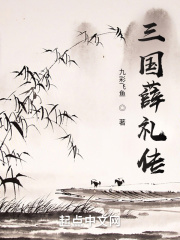 三国薛礼传
九彩飞鱼 ◎ 著
起点中文网